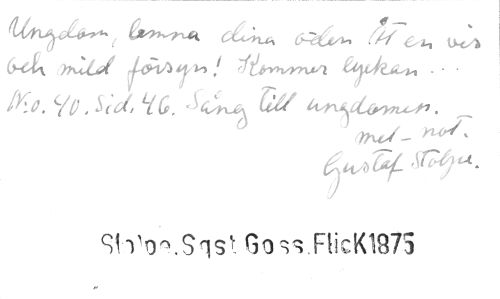 Ungdom, lemna dina öden åt en vis
och mild försyn! Kommer lyckan...
N:o. 40. Sid. 46. Sång till ungdomen.
mel-not.
Gustaf Stolpe.
Stolpe.Sgst Goss.FlicK1875